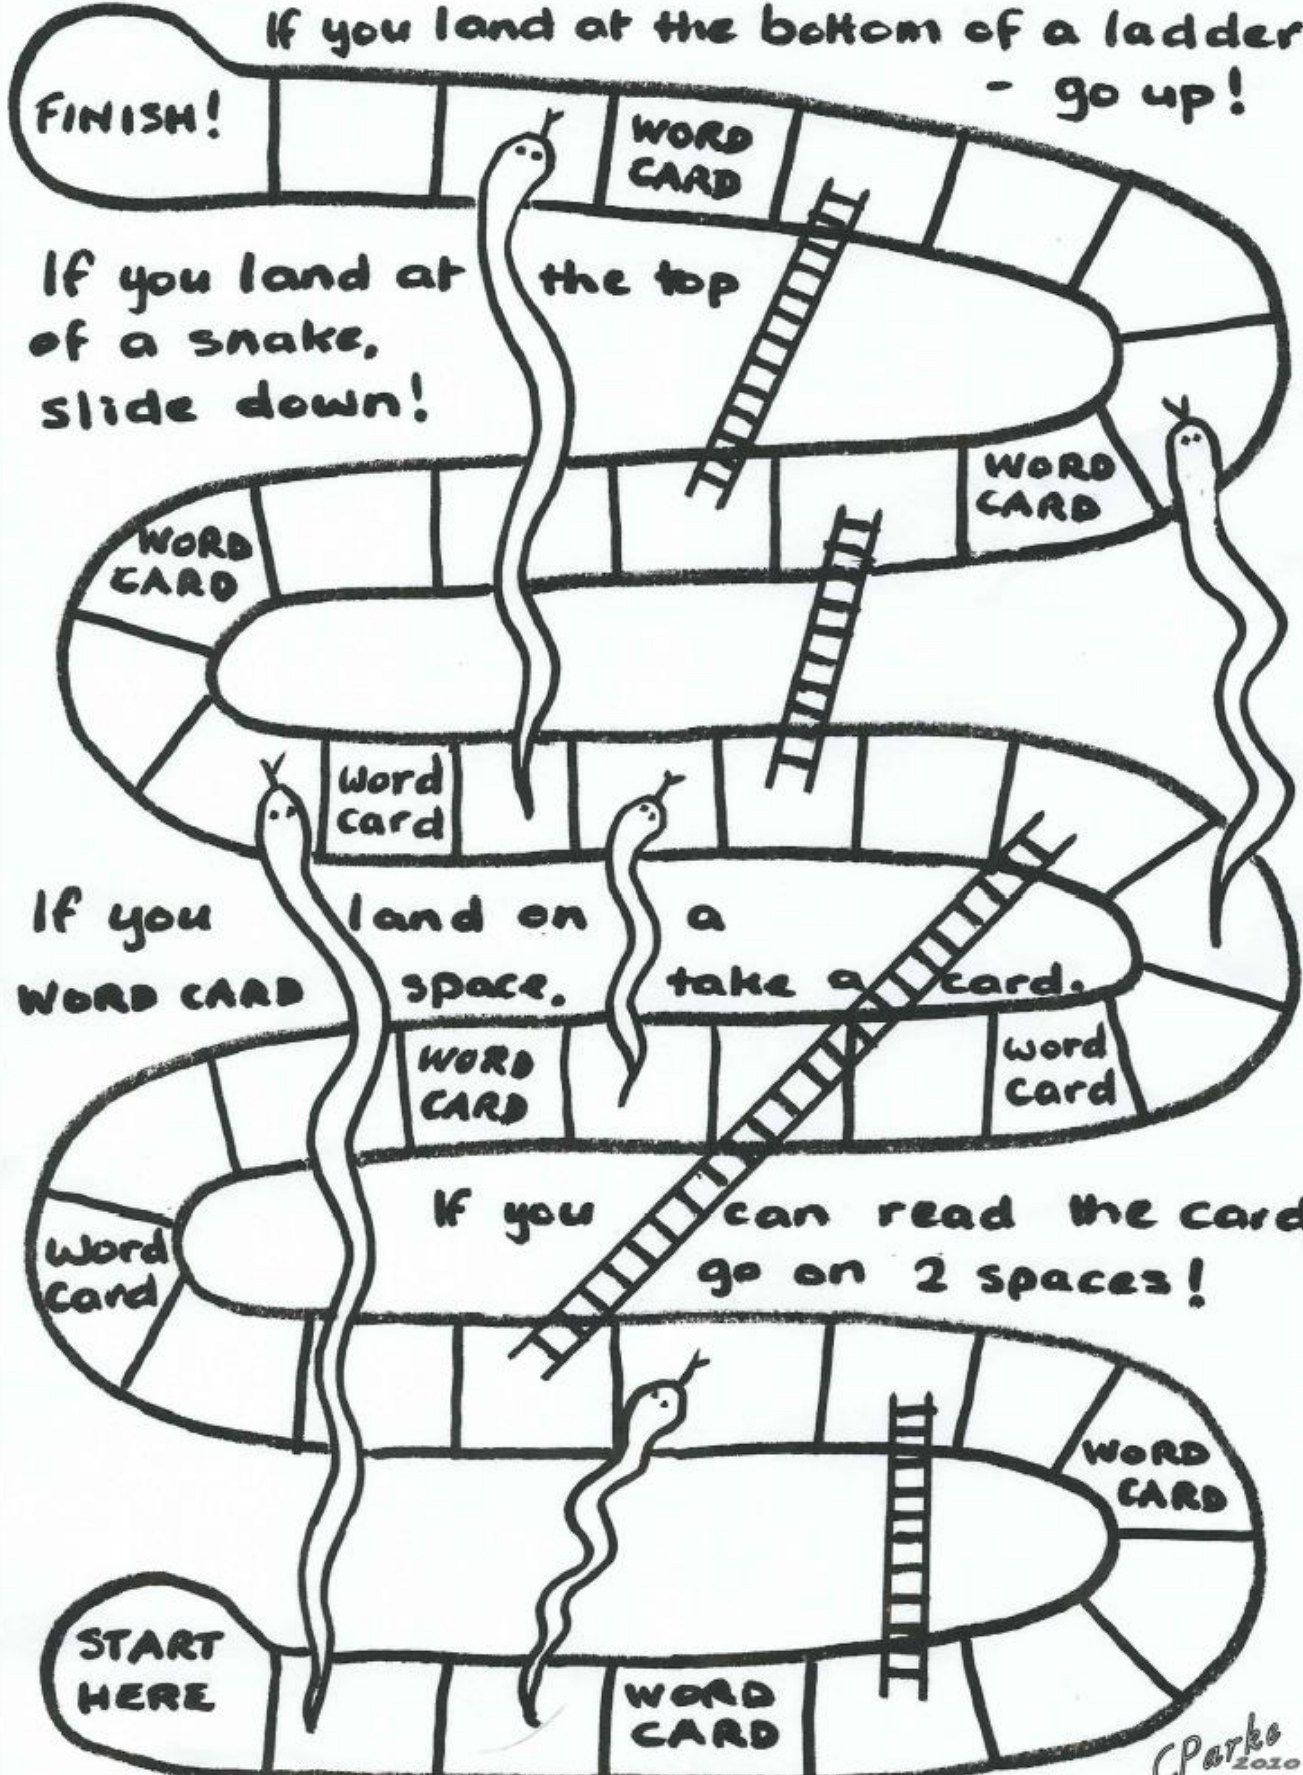 If you land at the bottom of a ladder
- go up!
FINISH!
WORD
CARD
If you land at the top
of a snake,
slide down!
WORD
CARD
WORD
CARD
Word
card
If you land on a
WORD CARD space, take a card.
WORD
CARD
word
card
If you can read the card
go on 2 spaces!
Word
Card
WORD
CARD
START
HERE
WORD
CARD
CParke
2020